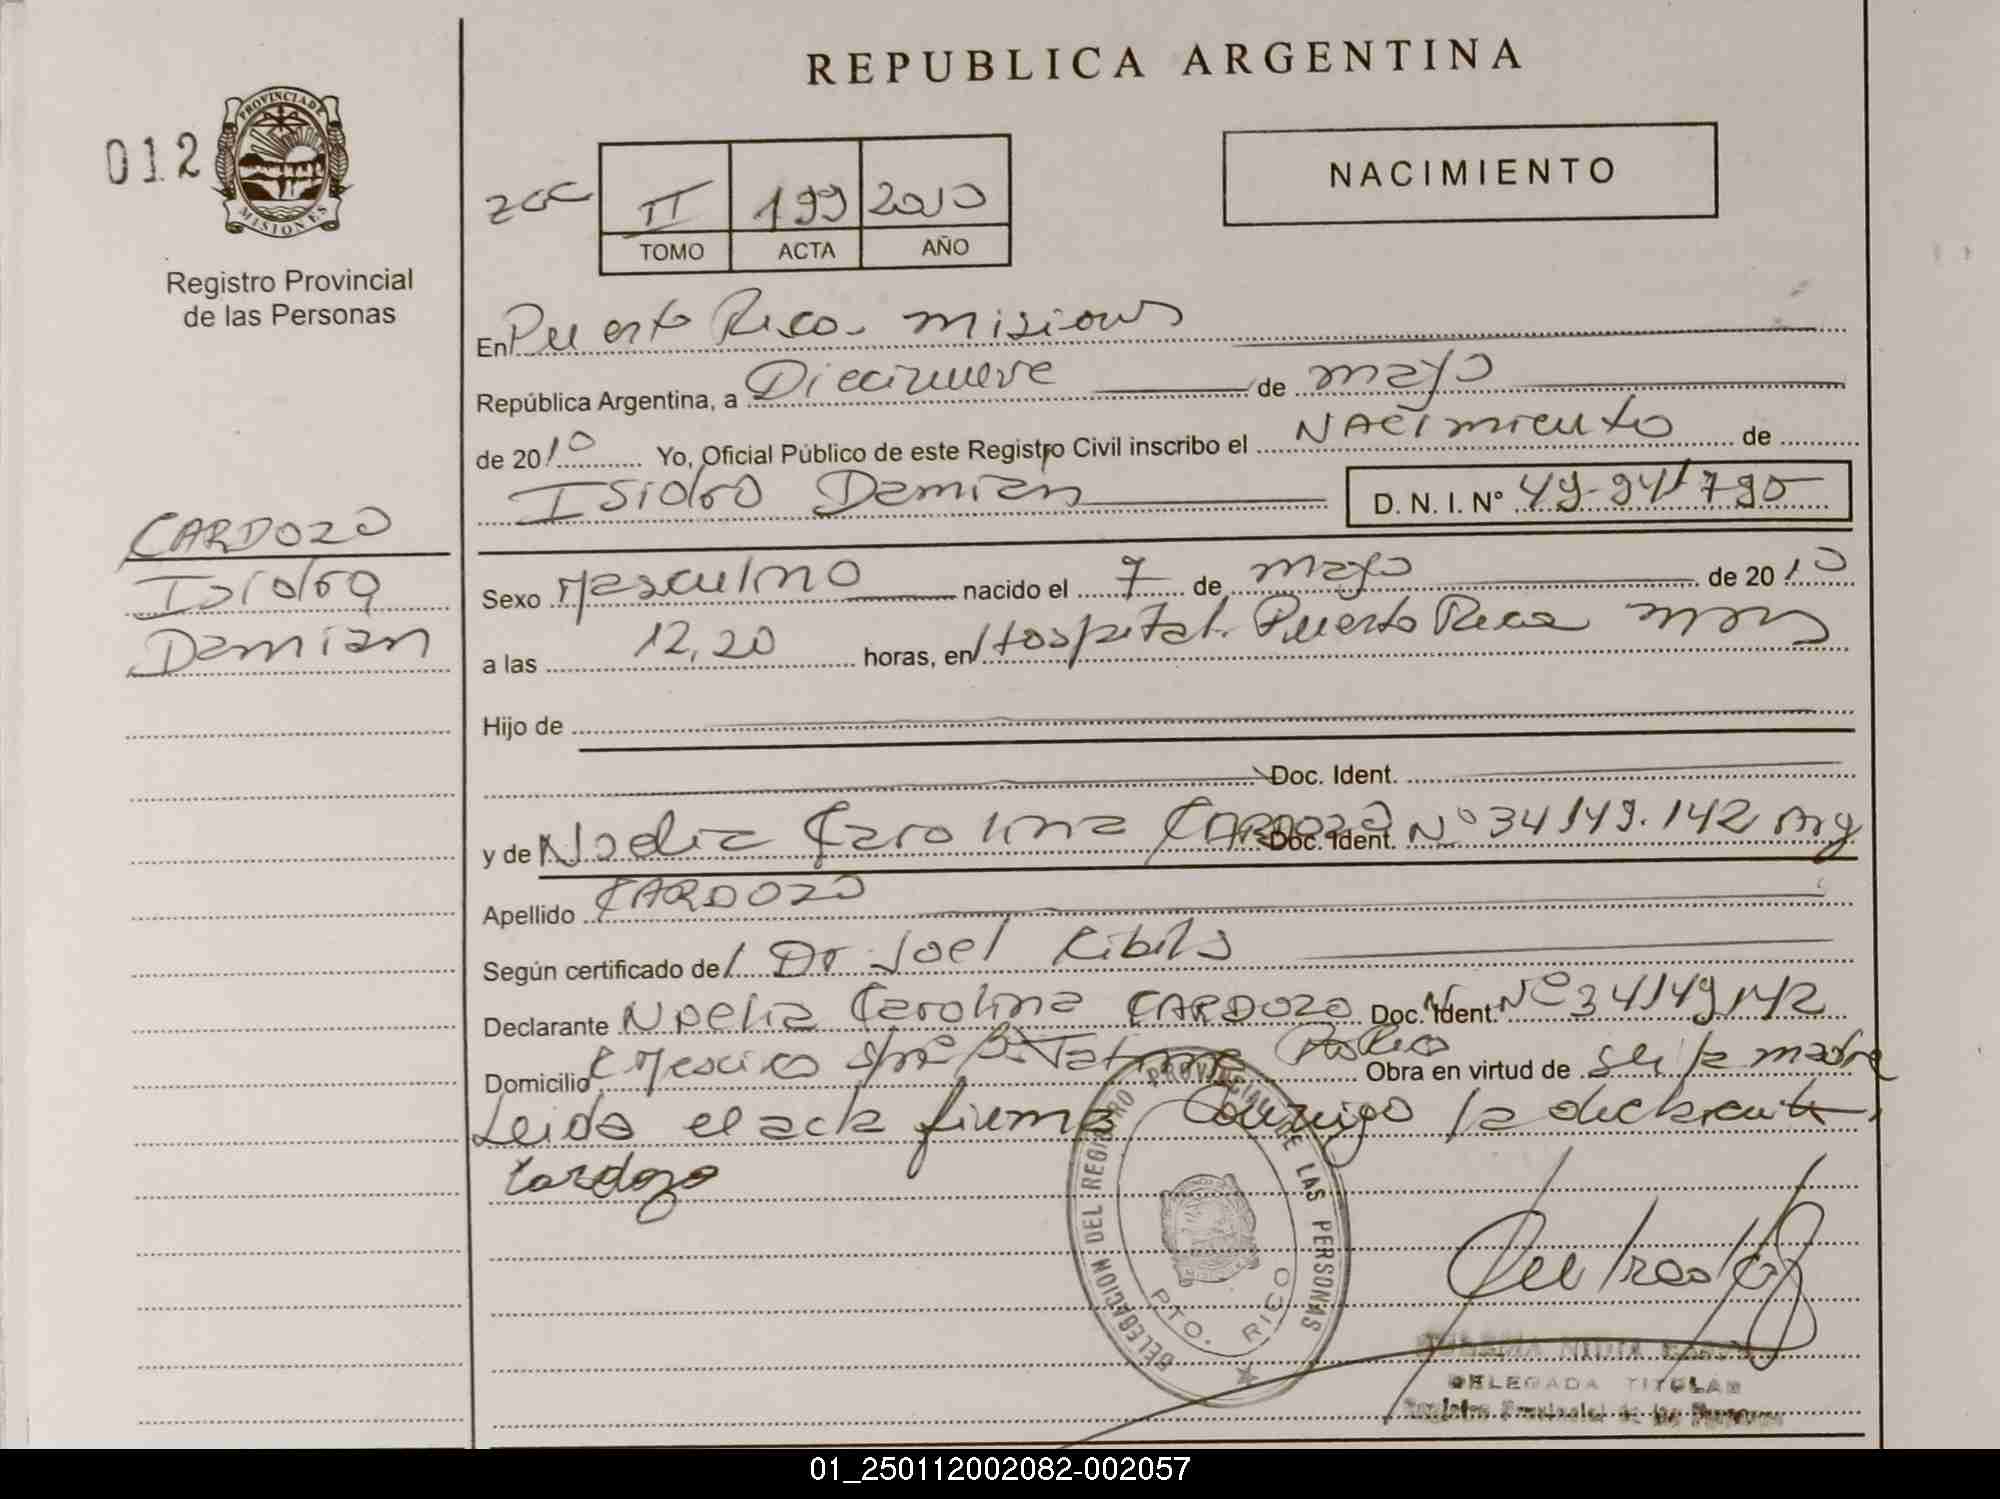 REPUBLICA ARGENTINA
012
PROVINCIA DE
MISIONES
Registro Provincial
de las Personas
NACIMIENTO
II 199 2010
TOMO ACTA AÑO
En Puerto Rico - Misiones
República Argentina, a Diecinueve de mayo
de 2010 Yo, Oficial Público de este Registro Civil inscribo el NAcimiento de
Isidro Damian D. N. I. Nº 49.941790
CARDOZO
Isidro
Damian
Sexo Masculino nacido el 7 de mayo de 2010
a las 12,20 horas, en Hospital. Puerto Rico Mnes
Hijo de
Doc. Ident.
y de Noelia Carolina CARDOZO Doc. Ident. Nº 34149.142 Arg
Apellido CARDOZO
Según certificado del Dr Joel
Declarante Noelia Carolina CARDOZO Doc. Ident. Nº 34149142
Domicilio Mexico Bº Pto Rico Obra en virtud de ser la madre
Leida el acta firma Conmigo la declarante
Cardozo
DELEGACION DEL REGISTRO PROVINCIAL DE LAS PERSONAS
PTO. RICO
DELEGADA TITULAR
Registro Provincial de las Personas
01_250112002082-002057